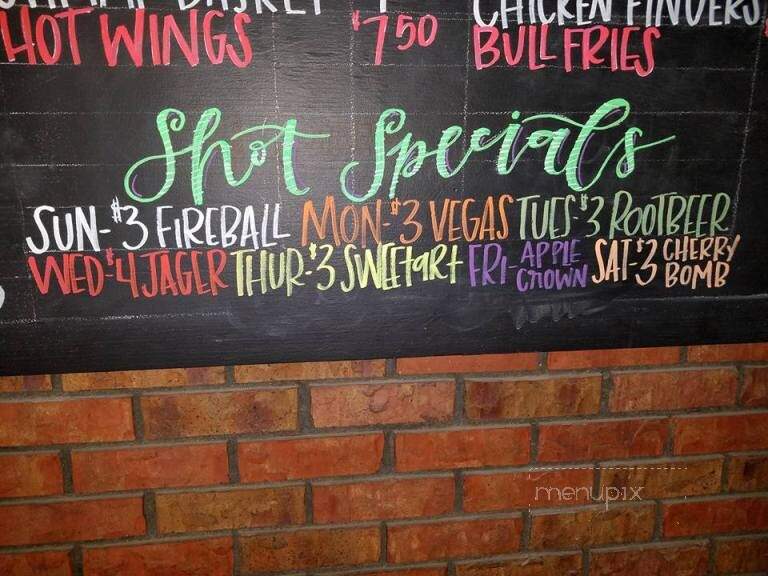 BASKET
HOT WINGS $7.50
CHICKEN FINGERS
BULL FRIES
Shot Specials
SUN-$3 FIREBALL MON-$3 VEGAS TUES-$3 ROOTBEER
WED-$4 JAGER THUR-$3 SWEETART FRI-APPLE CROWN SAT-$3 CHERRY BOMB
menupix